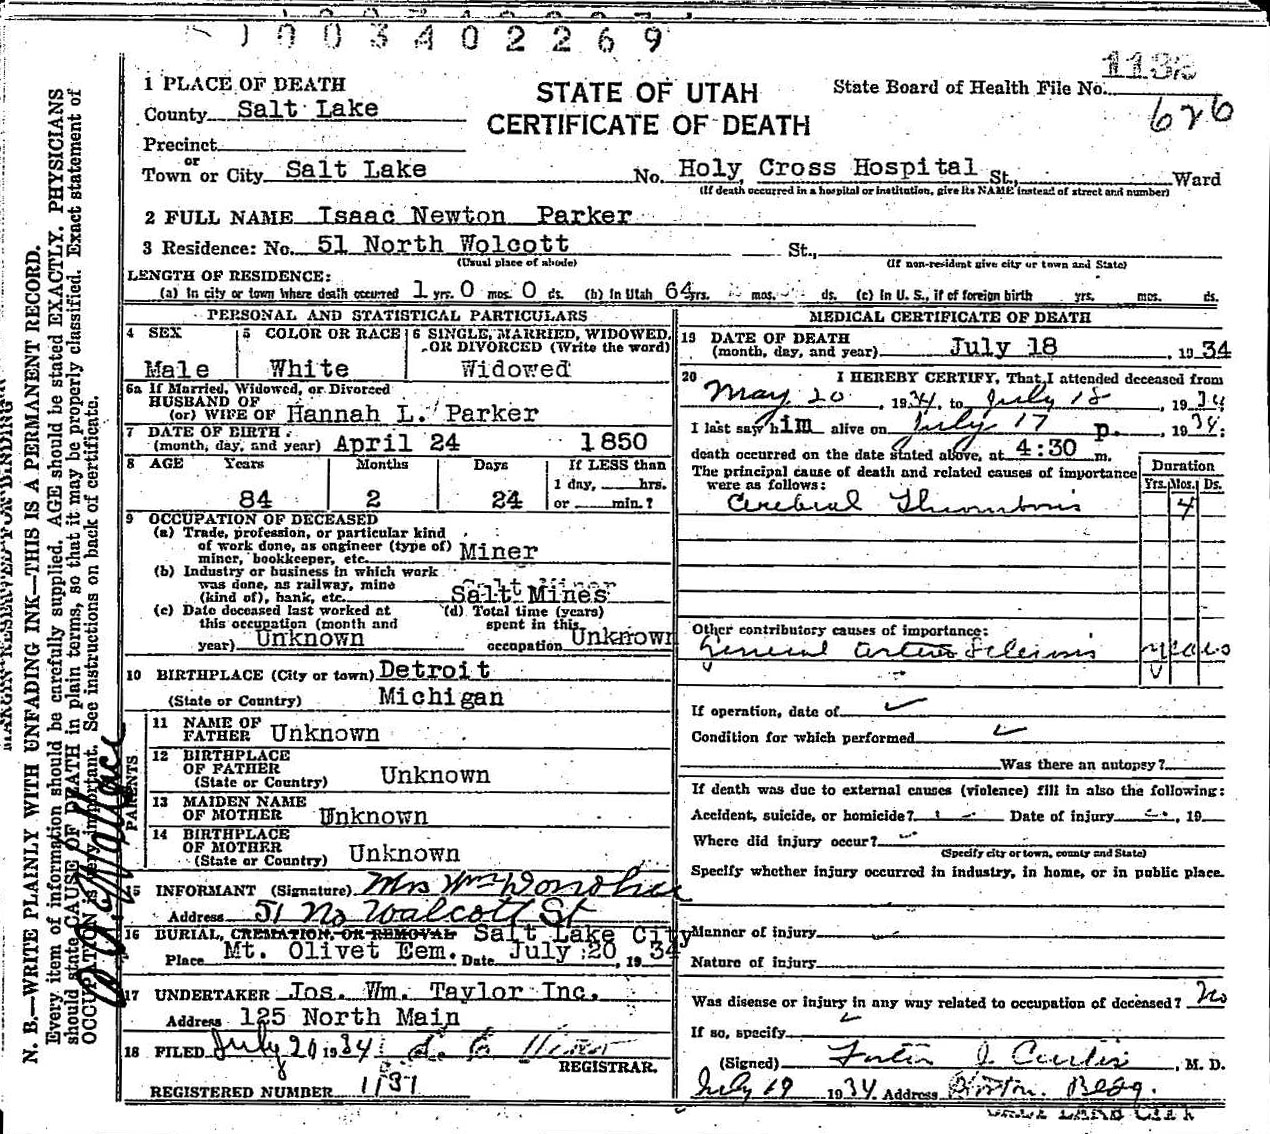 1003402269
1 PLACE OF DEATH
County Salt Lake
Precinct
or
Town or City Salt Lake
STATE OF UTAH
CERTIFICATE OF DEATH
State Board of Health File No.
626
No. Holy Cross Hospital St., Ward
(If death occurred in a hospital or institution, give its NAME instead of street and number)
2 FULL NAME Isaac Newton Parker
3 Residence: No. 51 North Wolcott St.,
(Usual place of abode) (If non-resident give city or town and State)
LENGTH OF RESIDENCE:
(a) In city or town where death occurred 1 yrs. 0 mos. 0 ds. (b) In Utah 64 yrs. mos. ds. (c) In U. S., if of foreign birth yrs. mos. ds.
PERSONAL AND STATISTICAL PARTICULARS
4 SEX
Male
5 COLOR OR RACE
White
6 SINGLE, MARRIED, WIDOWED,
OR DIVORCED (Write the word)
Widowed
6a If Married, Widowed, or Divorced
HUSBAND OF
(or) WIFE OF Hannah L. Parker
7 DATE OF BIRTH
(month, day, and year) April 24 1850
8 AGE Years Months Days If LESS than
1 day, hrs.
84 2 24 or min.?
9 OCCUPATION OF DECEASED
(a) Trade, profession, or particular kind
of work done, as engineer (type of)
miner, bookkeeper, etc. Miner
(b) Industry or business in which work
was done, as railway, mine
(kind of), bank, etc. Salt Mines
(c) Date deceased last worked at
this occupation (month and
year) Unknown
(d) Total time (years)
spent in this
occupation Unknown
10 BIRTHPLACE (City or town) Detroit
(State or Country) Michigan
PARENTS
11 NAME OF
FATHER Unknown
12 BIRTHPLACE
OF FATHER
(State or Country) Unknown
13 MAIDEN NAME
OF MOTHER Unknown
14 BIRTHPLACE
OF MOTHER
(State or Country) Unknown
15 INFORMANT (Signature) Mrs Wm Donohue
Address 51 No Walcott St
16 BURIAL, CREMATION, OR REMOVAL Salt Lake City
Place Mt. Olivet Eem. Date July 20, 1934
17 UNDERTAKER Jos. Wm. Taylor Inc.
Address 125 North Main
18 FILED July 20 1934
REGISTRAR.
REGISTERED NUMBER 1137
MEDICAL CERTIFICATE OF DEATH
19 DATE OF DEATH
(month, day, and year) July 18, 1934
20 I HEREBY CERTIFY, That I attended deceased from
May 20, 1934, to July 18, 1934
I last saw him alive on July 17, 1934;
death occurred on the date stated above, at 4:30 p. m.
The principal cause of death and related causes of importance
were as follows:
Duration
Yrs. Mos. Ds.
Cerebral Thrombosis 4
Other contributory causes of importance:
General arterio Sclerosis years
If operation, date of
Condition for which performed
Was there an autopsy?
If death was due to external causes (violence) fill in also the following:
Accident, suicide, or homicide? Date of injury , 19
Where did injury occur?
(Specify city or town, county and State)
Specify whether injury occurred in industry, in home, or in public place.
Manner of injury
Nature of injury
Was disease or injury in any way related to occupation of deceased? No
If so, specify
(Signed) J. Curtis, M. D.
July 19 1934 Address Boston Bldg.
SALT LAKE CITY
MARGIN RESERVED FOR BINDING
N. B.—WRITE PLAINLY WITH UNFADING INK—THIS IS A PERMANENT RECORD.
Every item of information should be carefully supplied. AGE should be stated EXACTLY. PHYSICIANS
should state CAUSE OF DEATH in plain terms, so that it may be properly classified. Exact statement of
OCCUPATION is very important. See instructions on back of certificate.
Wallace